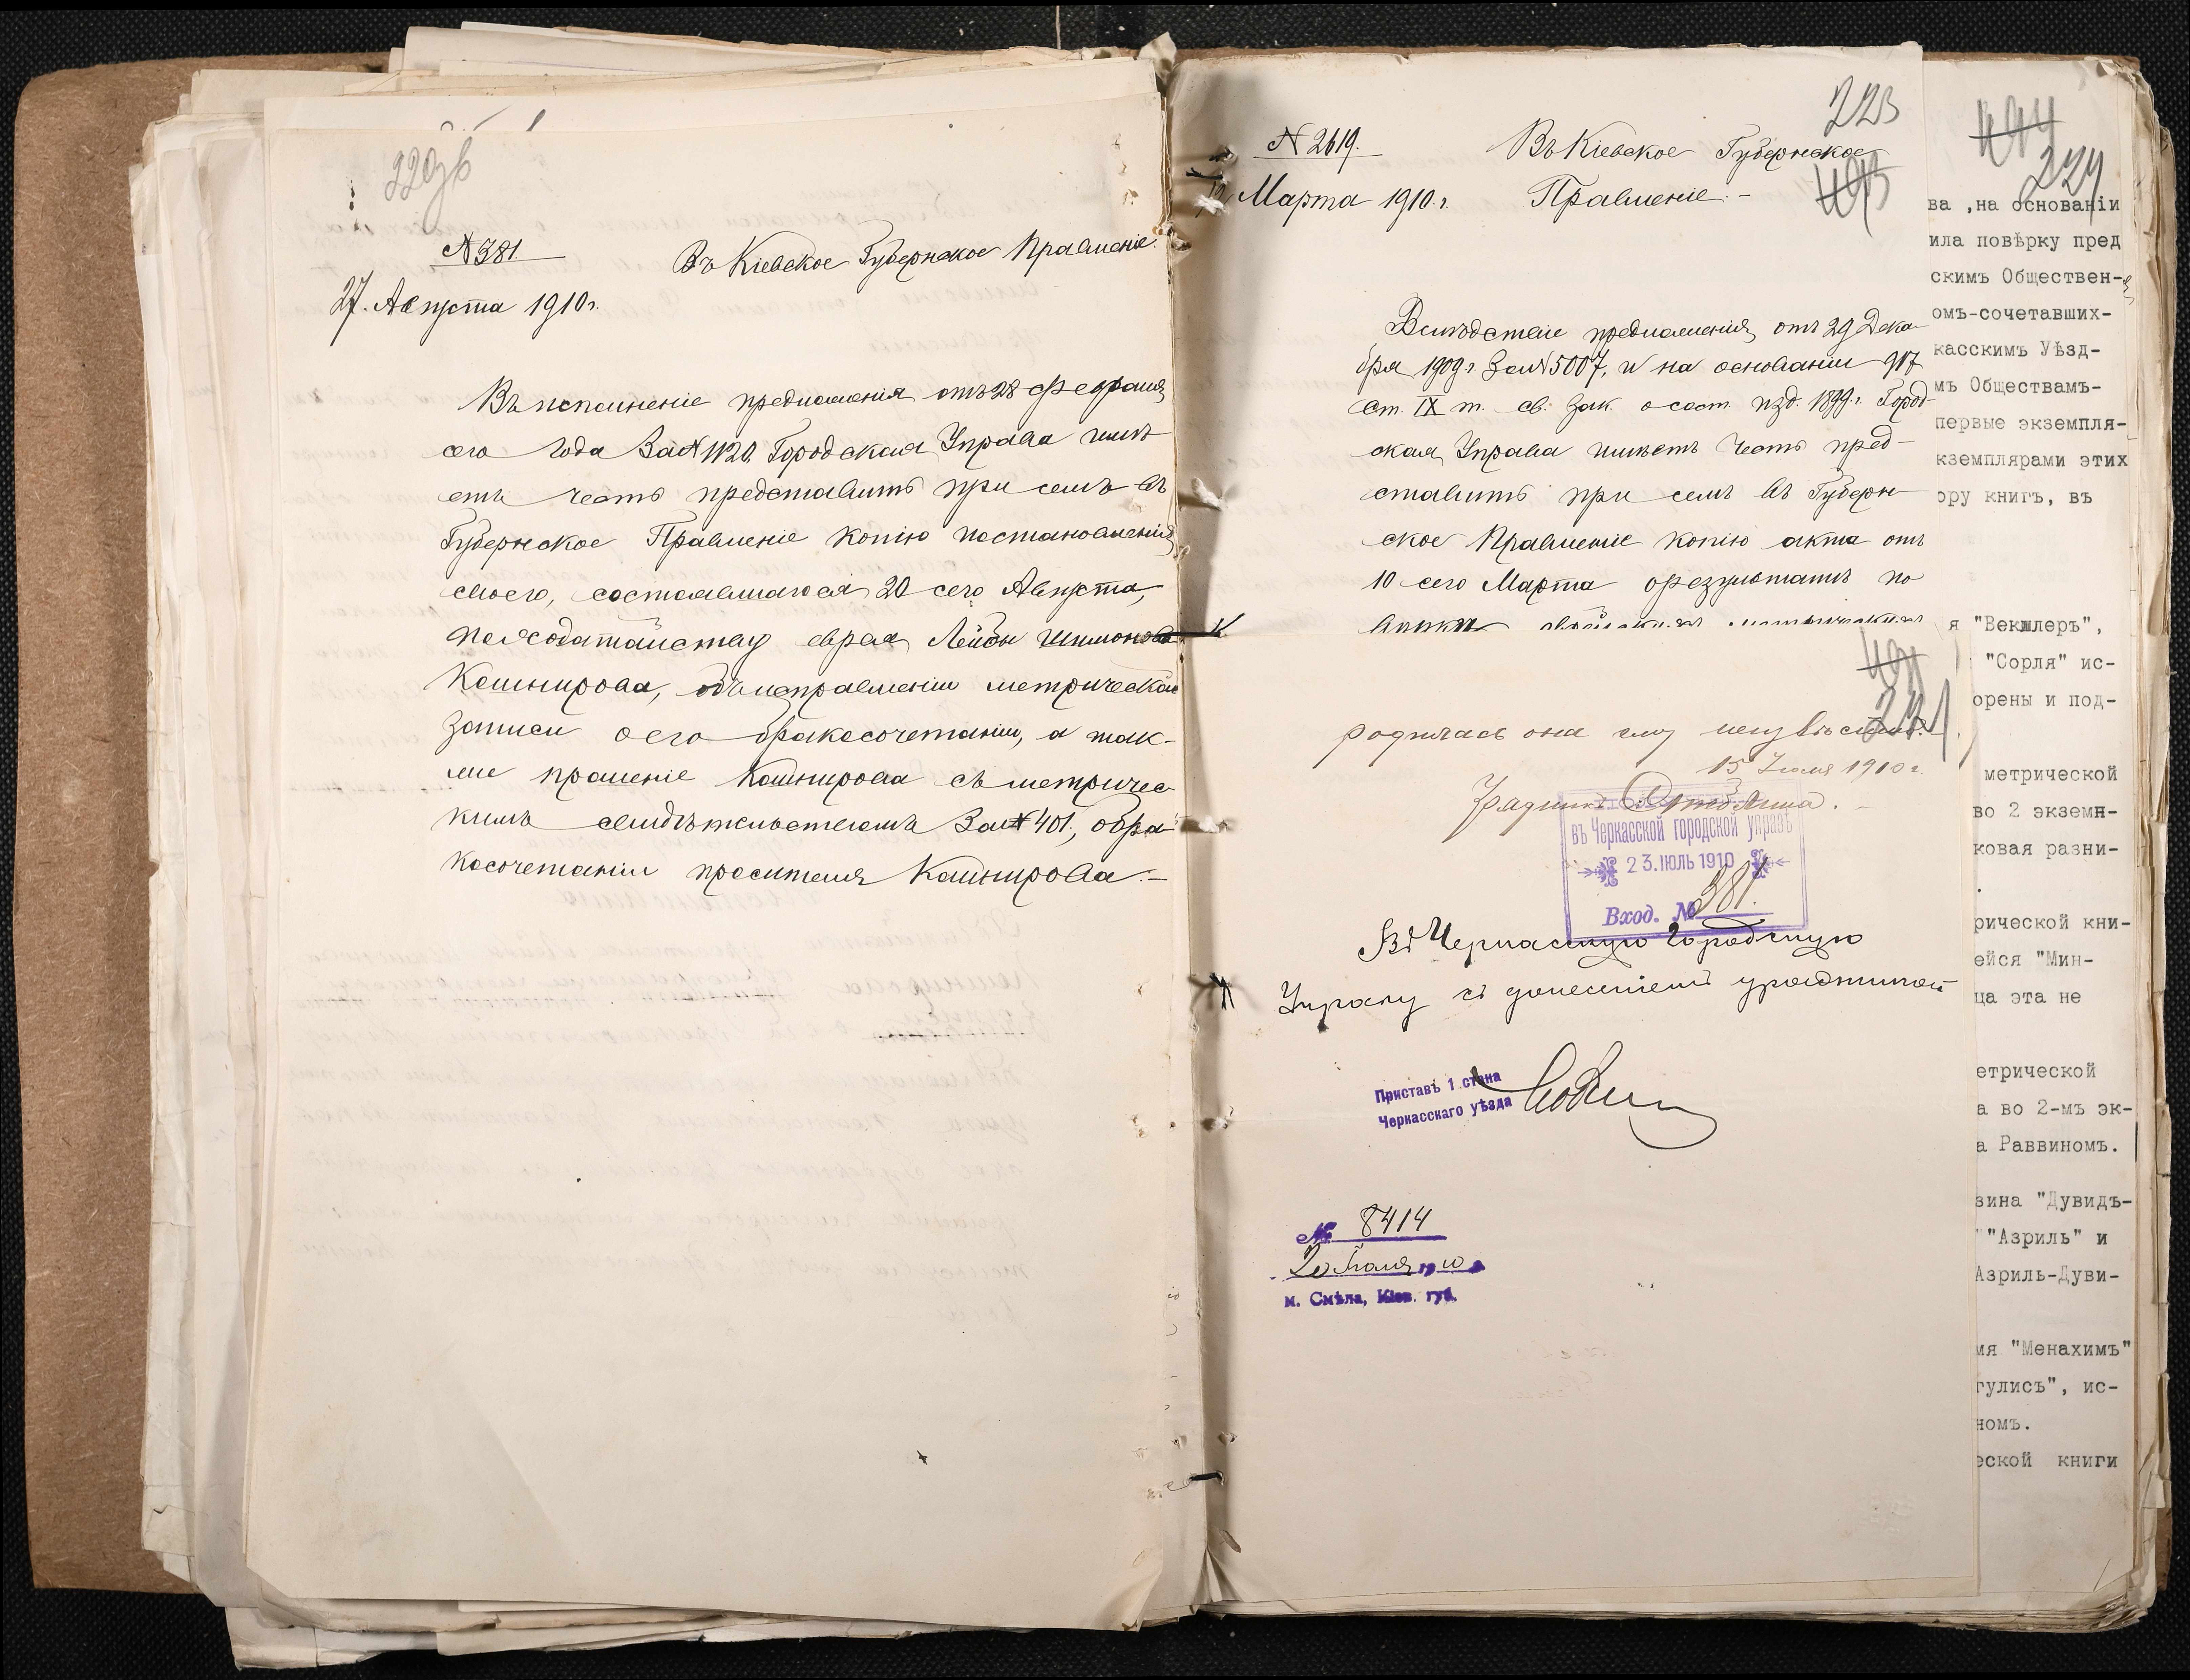 220об
№ 381.
27. Августа 1910 г.
Въ Кіевское Губернское Правленіе.
Въ исполненіе предложенія отъ 28 Февраля
сего года За № 1120, Городская Управа имѣ-
етъ честь представить при семъ въ
Губернское Правленіе копію постановленія
своего, состоявшагося 20 сего Августа,
по ходатайству еврея Лейбы Шимонова
Кошнирова, объ исправленіи метрической
записи о его бракосочетаніи, а так-
же прошеніе Кошнирова съ метричес-
кимъ свидѣтельствомъ За № 401, о бра-
косочетаніи просителя Кошнирова.-
223
№ 2619.
Марта 1910 г.
Въ Кіевское Губернское
Правленіе.-
493
Вслѣдствіе предложенія, отъ 29 Дека-
бря 1909 г. За № 5007, и на основаніи 917
ст. IX т. св. зак. о сост. изд. 1899 г. Город-
ская Управа имѣетъ честь пред-
ставить при семъ въ Губерн-
ское Правленіе копію акта отъ
10 сего Марта о результатѣ по-
491
221
родилась она ему неизвѣстно.
15 Іюля 1910 г.
Урядникъ
въ Черкасской городской управѣ
23. ІЮЛЬ 1910
Вход. № 381.
Въ Черкасскую Городскую
Управу съ донесеніемъ урядника
Приставъ 1 стана
Черкасскаго уѣзда
№ 8414
20 Іюля 1910 г.
м. Смѣла, Кіев. губ.
494
224
ва ,на основаніи
ила повѣрку пред
скимъ Обществен-
омъ-сочетавших-
касскимъ Уѣзд-
мъ Обществамъ-
первые экземпля-
кземплярами этих
ору книгъ, въ
я "Векшлеръ",
"Сорля" ис-
орены и под-
метрической
во 2 экземп-
ковая разни-
рической кни-
ейся "Мин-
ца эта не
етрической
а во 2-мъ эк-
а Раввиномъ.
зина "Дувидъ-
"Азриль" и
Азриль-Дуви-
мя "Менахимъ"
гулисъ", ис-
номъ.
еской книги